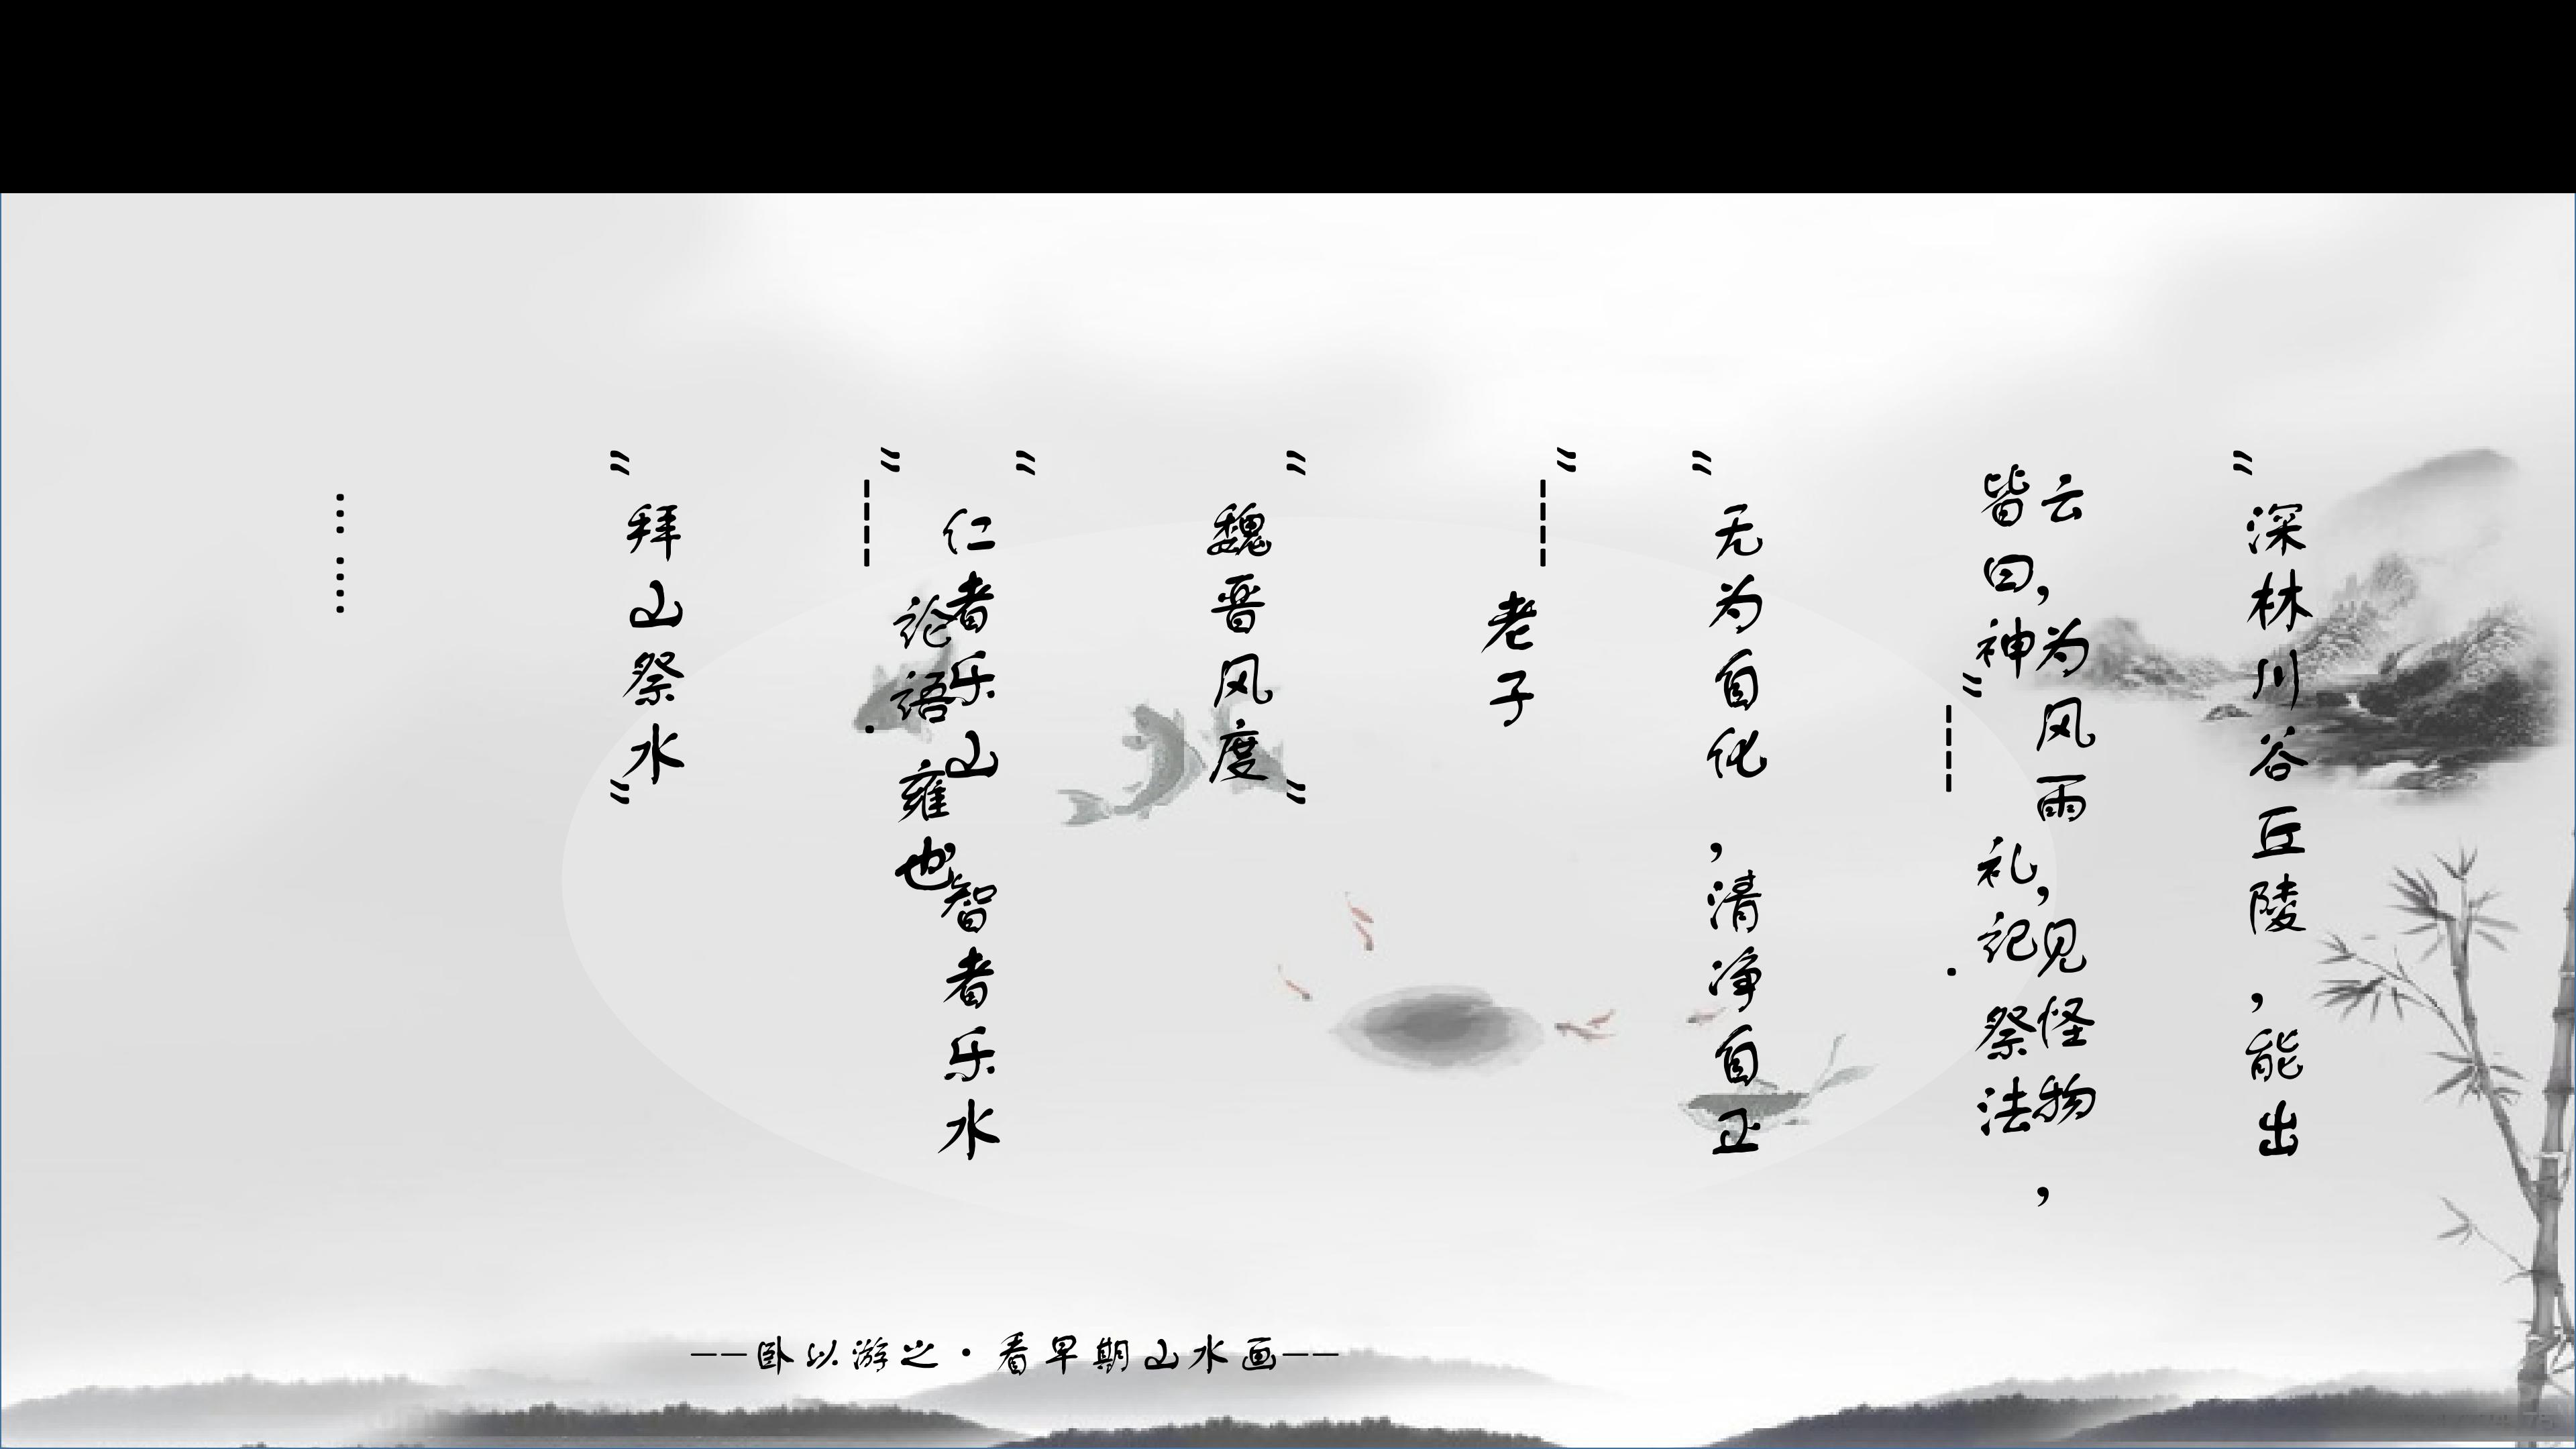 "深林川谷丘陵，能出
云，为风雨，见怪物，
皆曰神"----礼记·祭法
"无为自化，清净自正
"----老子
"魏晋风度"
"仁者乐山，智者乐水
"----论语·雍也
"拜山祭水"
……
——卧以游之·看早期山水画——